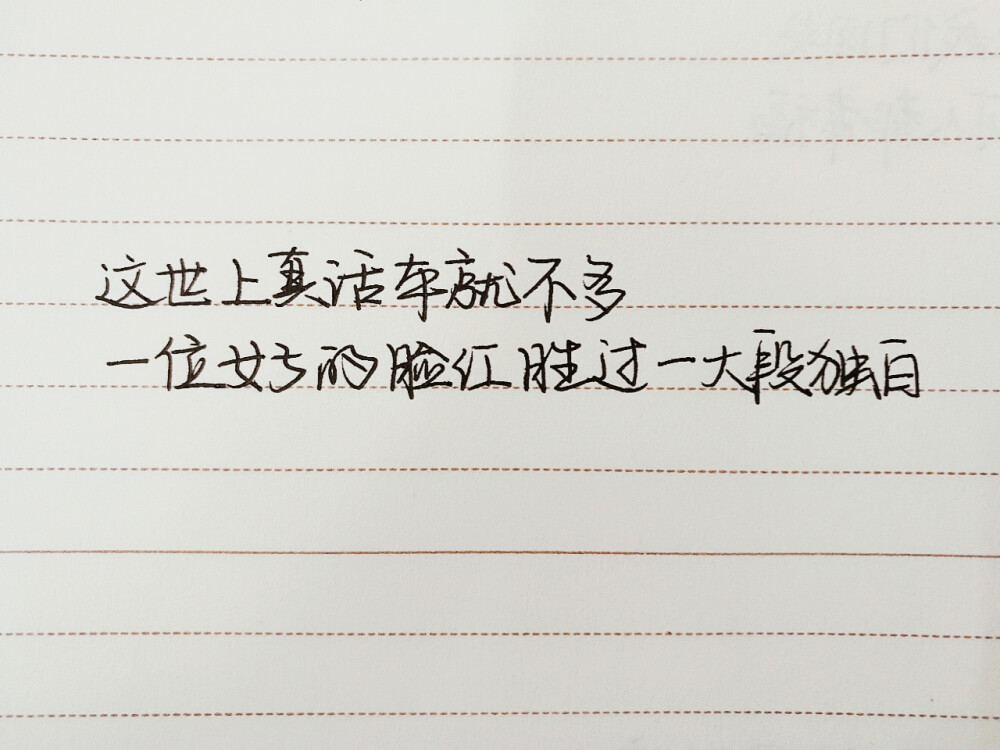 这世上真话本就不多
一位女子的脸红胜过一大段独白